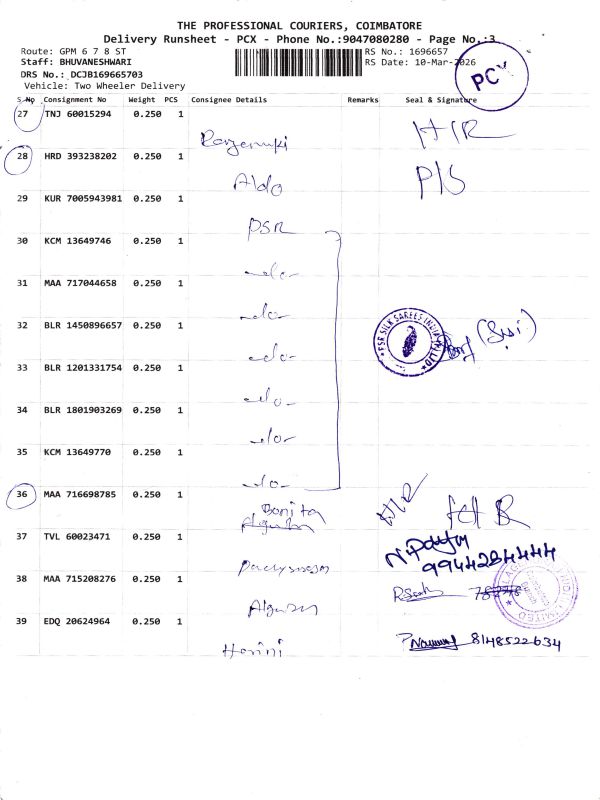 THE PROFESSIONAL COURIERS, COIMBATORE
Delivery Runsheet - PCX - Phone No.:9047080280 - Page No.:3
Route: GPM 6 7 8 ST
RS No.: 1696657
Staff: BHUVANESHWARI
RS Date: 10-Mar-2026
DRS No.: DCJB169665703
Vehicle: Two Wheeler Delivery
PCX
S No Consignment No Weight PCS Consignee Details Remarks Seal & Signature
27 TNJ 60015294 0.250 1
H/R
28 HRD 393238202 0.250 1
Aldo
P/S
29 KUR 7005943981 0.250 1
PSR
30 KCM 13649746 0.250 1
-do-
31 MAA 717044658 0.250 1
-do-
32 BLR 1450896657 0.250 1
-do-
PSR SILK SAREES INDIA
33 BLR 1201331754 0.250 1
-do-
34 BLR 1801903269 0.250 1
-do-
35 KCM 13649770 0.250 1
-do-
36 MAA 716698785 0.250 1
Bonita
H/R
37 TVL 60023471 0.250 1
38 MAA 715208276 0.250 1
39 EDQ 20624964 0.250 1
Harini
8148522634